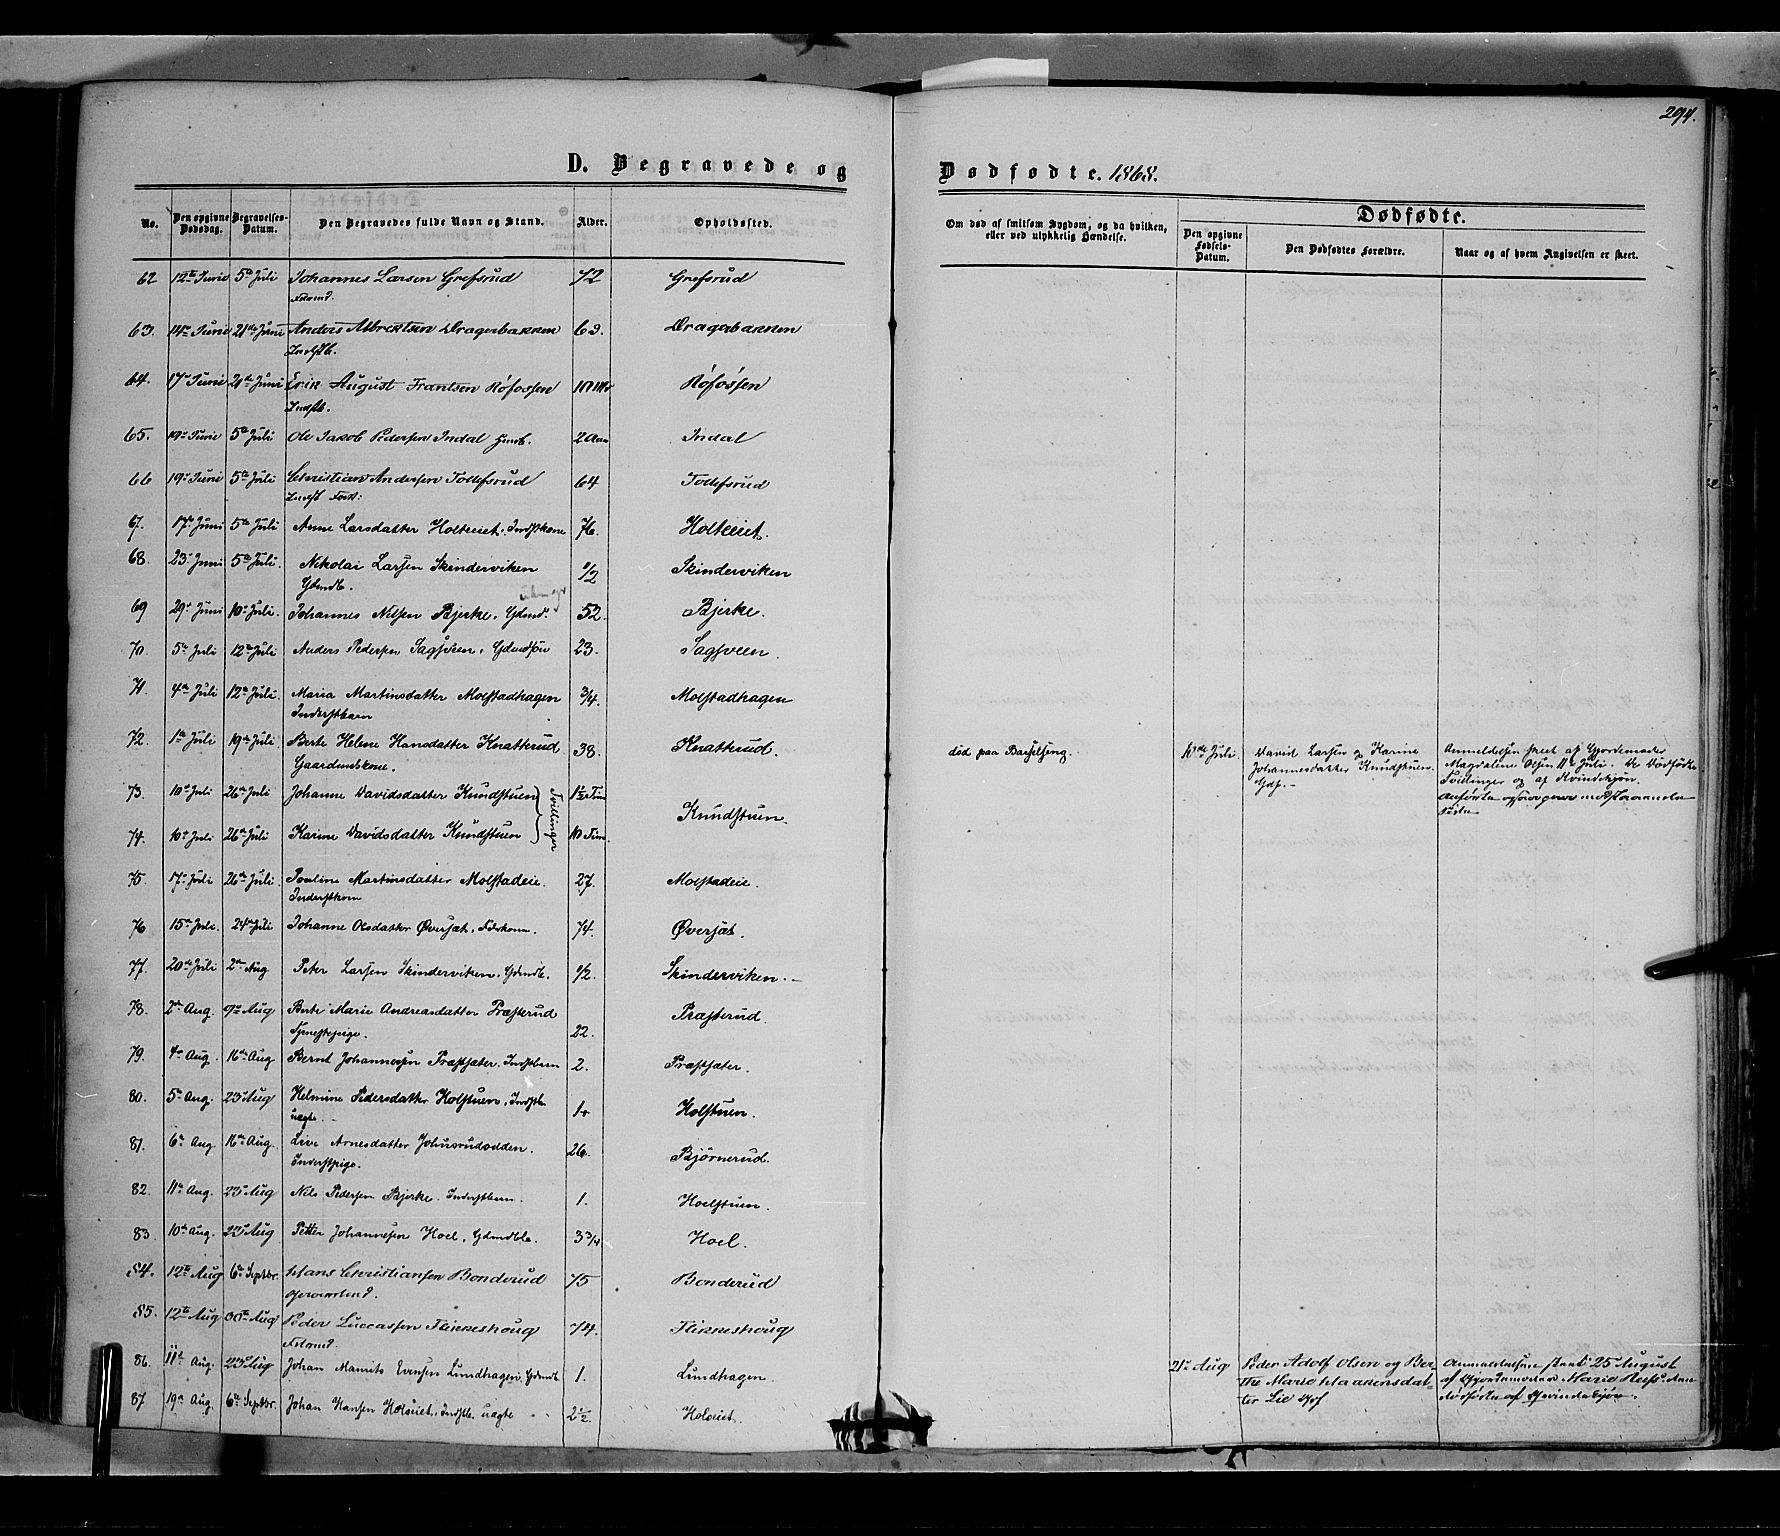 294.
D. Begravede og
Dødfødte. 1868.
No.
Den opgivne Dødsdag.
Begravelses-Datum.
Den Begravedes fulde Navn og Stand.
Alder.
Opholdssted.
Om død af smitsom Sygdom, og da hvilken, eller ved ulykkelig Hændelse.
Dødfødte.
Den opgivne Fødsels-Datum.
Den Dødfødtes Forældre.
Naar og af hvem Angivelsen er skeet.
62 12te Junie 5te Juli Johannes Larsen Grefsrud 72 Grefsrud
63. 14de Junie 21de Junie Anders Albrektsen Dragerbakken 63. Dragerbakken
Indstb.
64. 17de Junie 21de Junie Erik August Frantsen Røfossen 10 Mdr Røfossen
Indstb.
65. 19de Junie 5te Juli Ole Jakob Pedersen Indal 2 Aar Indal
66 19de Junie 5te Juli Christian Andersen Tollefsrud 64 Tollefsrud
67. 17de Juni 5te Juli Anne Larsdatter Holteiet, Indstkone 76. Holteiet.
68. 23de Juni 5te Juli. Nikolai Larsen Skinderviken 1/2 Skinderviken
Gdmdb.
69 29de Juni 10de Juli. Johannes Nilsen Bjerke, Gdmd. 52. Bjerke.
70. 5te Juli 12te Juli Anders Pedersen Sagsveen, Gdmdsøn 23. Sagsveen.
71. 4de Juli 12te Juli. Maria Martinsdatter Molstadhagen 3/4. Molstadhagen
Inderstbarn
72. 1ste Juli 19de Juli. Berte Helene Hansdatter Knatterud 38. Knatterud. død paa Barselseng. 10de Juli David Larsen og Karine
Gaardmdskone. Johannesdatter Knudstuen
Gdf. -
Anmeldelsen skeet af Gjordemoder
Magdalene Olsen 11te Juli. De Dødfødte
Tvillinger og af Kvindekjøn.
73. 10de Juli 26de Juli Johanne Davidsdatter Knudstuen 1 1/2 Time Knudstuen.
Tvillinger
74. 10de Juli 26de Juli Karine Davidsdatter Knudstuen 10 Tim.
75. 17de Juli 26de Juli Pouline Martinsdatter Molstadeie. 27. Molstadeie.
Inderstkone
76 15de Juli. 24de Juli Johanne Olsdatter Øversjøt, Føderkone. 74. Øversjøt.
77. 20de Juli 2den Aug Peter Larsen Skinderviken, Gdmdb. 1/2. Skinderviken. -
78. 2den Aug. 9de Aug Berte Marie Andreasdatter Præsterud 22. Præsterud.
Tjenestepige.
79. 4de Aug. 16de Aug Bernt Johannesen Præstsæter. Indstbarn 2. Præstsæter.
80. 5te Aug. 23de Aug Helmine Pedersdatter Holstuen, Indstb. Holstuen.
uægte. -
81. 6te Aug 16de Aug. Live Arnesdatter Johnsrudodden. 26. Bjørnerud.
Inderstpige.
82. 11te Aug. 23de Aug Nils Pedersen Bjerke. Inderstbarn. 1. Hoelstuen.
83. 10de Aug. 23de Aug Petter Johannesen Hoel, Gdmdb. 3 3/4 Hoel.
84. 12te Aug 6te Septbr. Hans Christiansen Bonderud 75 Bonderud
85. 12te Aug 30te Aug Peder Luccassen Flikkeshoug 74. Flikkeshoug
86. 11te Aug. 23de Aug Johan Mauritz Evensen Lundhagen, Gdmdb 1. Lundhagen.
21de Aug Peder Adolf Olsen og Ber-
the Marie Haakensdat-
ter Lie Gdf
Anmeldelsen skeet 25 August
af Gjordemoder Marie
Dødfødte af Qvindekjøn.
87. 19de Aug. 6te Septbr. Johan Hansen Holsiet, Indstb. uægte 2 1/2. Holsiet.